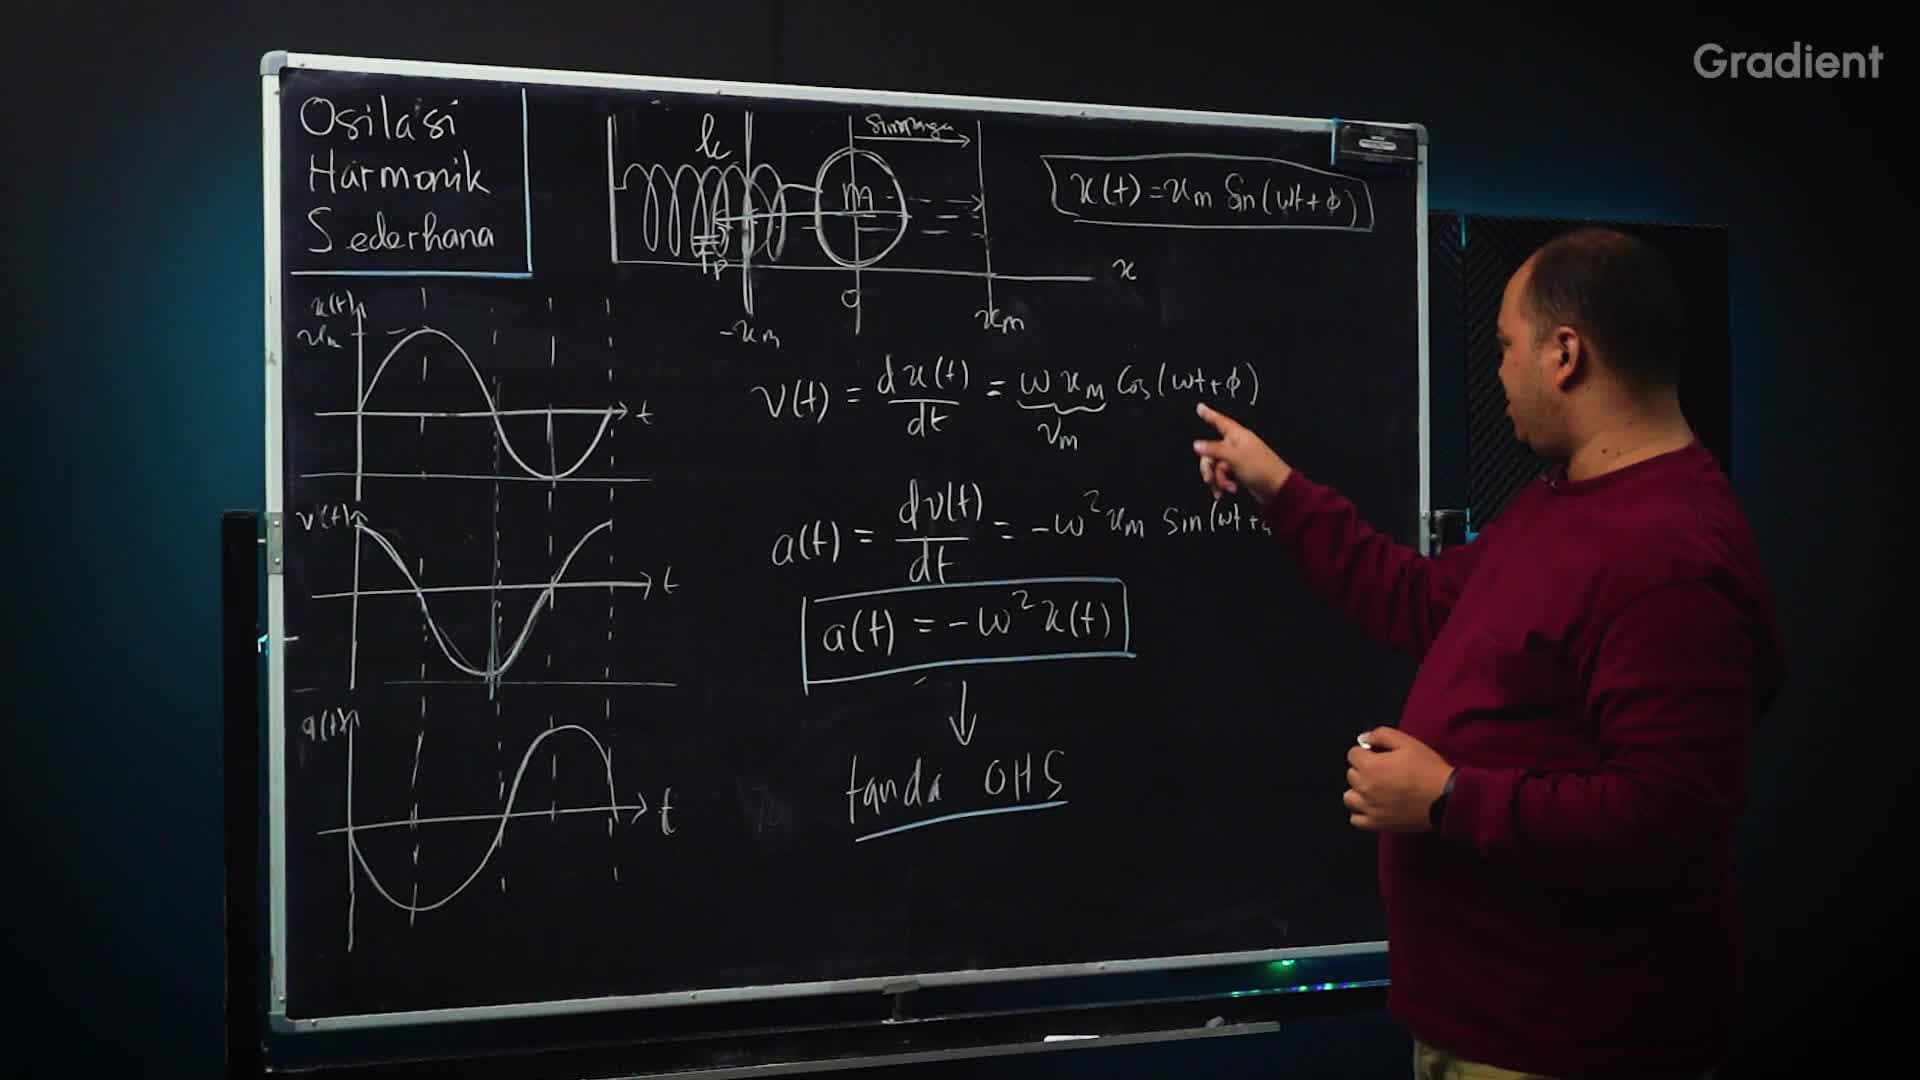 Gradient
Osilasi
Harmonik
Sederhana
k
Simpangan
m
Fp
x
-xm
0
xm
x(t) = xm Sin(ωt + ϕ)
x(t)
xm
t
v(t) = dx(t)/dt = ω xm Cos(ωt + ϕ)
vm
v(t)
t
a(t) = dv(t)/dt = -ω² xm Sin(ωt +
a(t) = -ω² x(t)
a(t)
t
tanda OHS